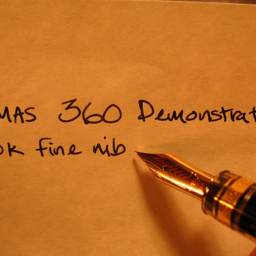 MAS 360 Demonstrat
ok fine nib